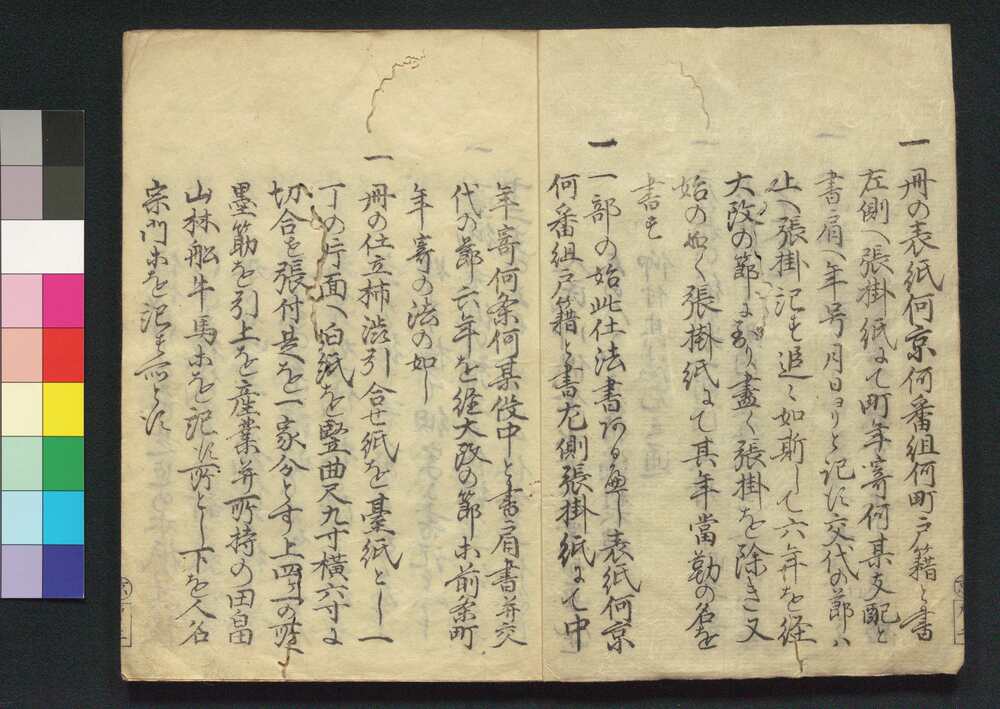 一 冊の表紙何京何番組何町戸籍と書
左側へ張掛紙にて町年寄何某支配と
書肩へ年号月日ヨリと記す交代の節ハ
上へ張掛記す追々如斯して六年を経
大改の節に至り盡く張掛を除き又
始の如く張掛紙にて其年當勤の名を
書す
一 一部の始此仕法書あるへし表紙何京
何番組戸籍と書左側張掛紙にて中
年寄何条何某役中と書肩書并交
代の節六年を経大改の節等前条町
年寄の法の如し
一 冊の仕立柿渋引合せ紙を臺紙とし一
丁の片面へ白紙を竪曲尺九寸横六寸に
切合を張付是を一家分とす上四ツ一の所
墨筋を引上を産業并所持の田畠
山林船牛馬等を記す所とし下を人名
宗門等を記す所とす